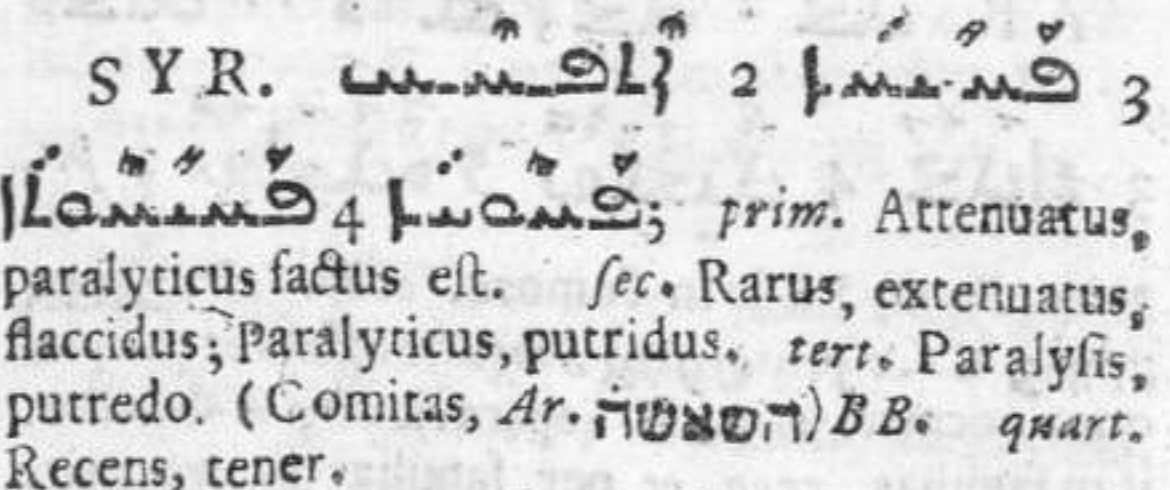 SYR. ܐܬܦܚܚ 2 ܦܚܝܚܐ 3
ܦܚܝܚܘܬܐ 4 ; prim. Attenuatus,
paralyticus factus eſt. ſec. Rarus, extenuatus,
flaccidus; Paralyticus, putridus. tert. Paralyſis,
putredo. (Comitas, Ar. השאשה) BB. quart.
Recens, tener.